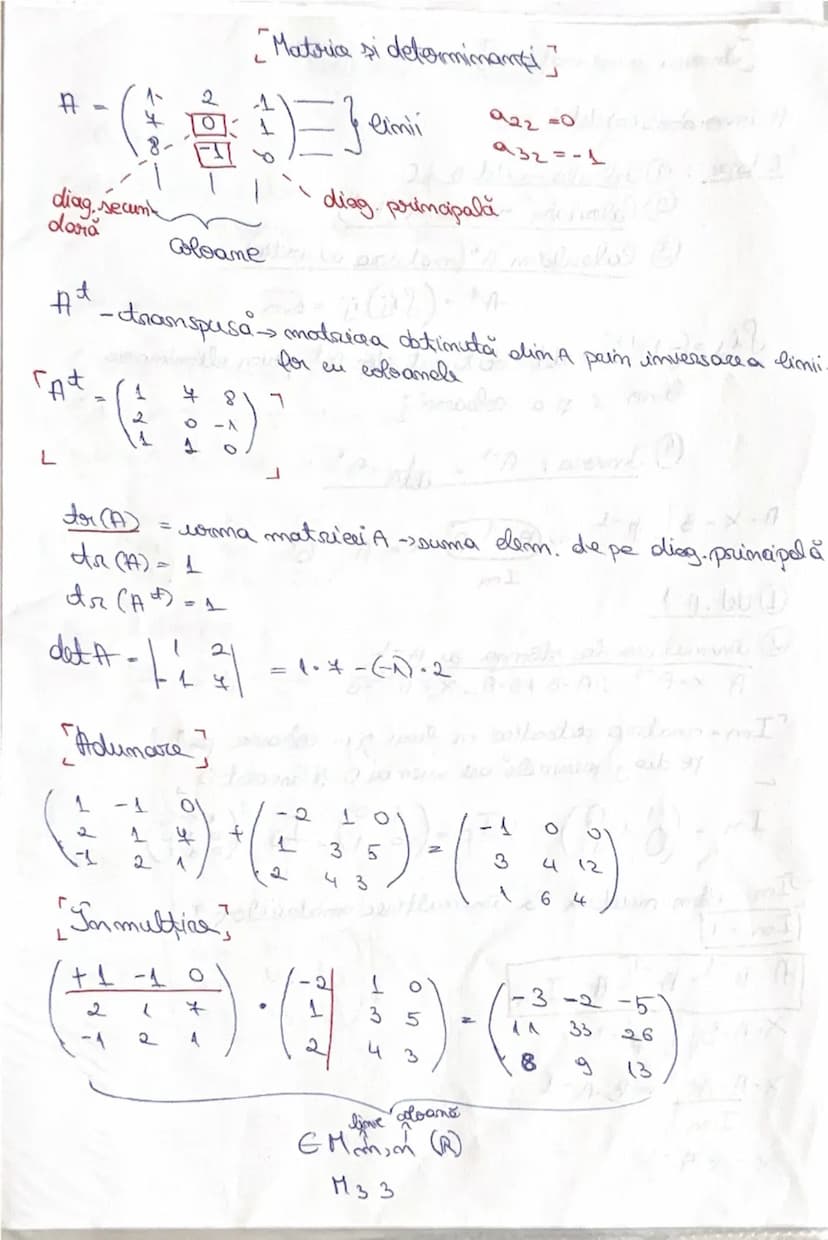 [Matrice și determinanți]
A = ( 1 2 -1 ) } linii
7 0 1
8 -1 0
a22 = 0
a32 = -1
diag. secun-
dară
diag. principală
coloane
A^t - transpusă → matricea obținută din A prin inversarea linii-
lor cu coloanele
[A^t = ( 1 7 8 )]
2 0 -1
1 1 0
tr(A) = urma matricei A → suma elem. de pe diag. principală
tr(A) = 1
tr(A^t) = 1
det A = | 1 2 | = 1·7 - (-1)·2
-1 7
[Adunare]
( 1 -1 0 ) + ( -2 1 0 ) = ( -1 0 0 )
2 1 7 1 3 5 3 4 12
-1 2 1 2 4 3 1 6 4
[Înmulțire]
( +1 -1 0 ) · ( -2 1 0 ) = ( -3 -2 -5 )
2 1 7 1 3 5 11 33 26
-1 2 1 2 4 3 8 9 13
linie coloană
∈ M m,n (R)
M 3 3